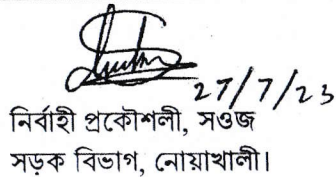 27/7/23
নির্বাহী প্রকৌশলী, সওজ
সড়ক বিভাগ, নোয়াখালী।